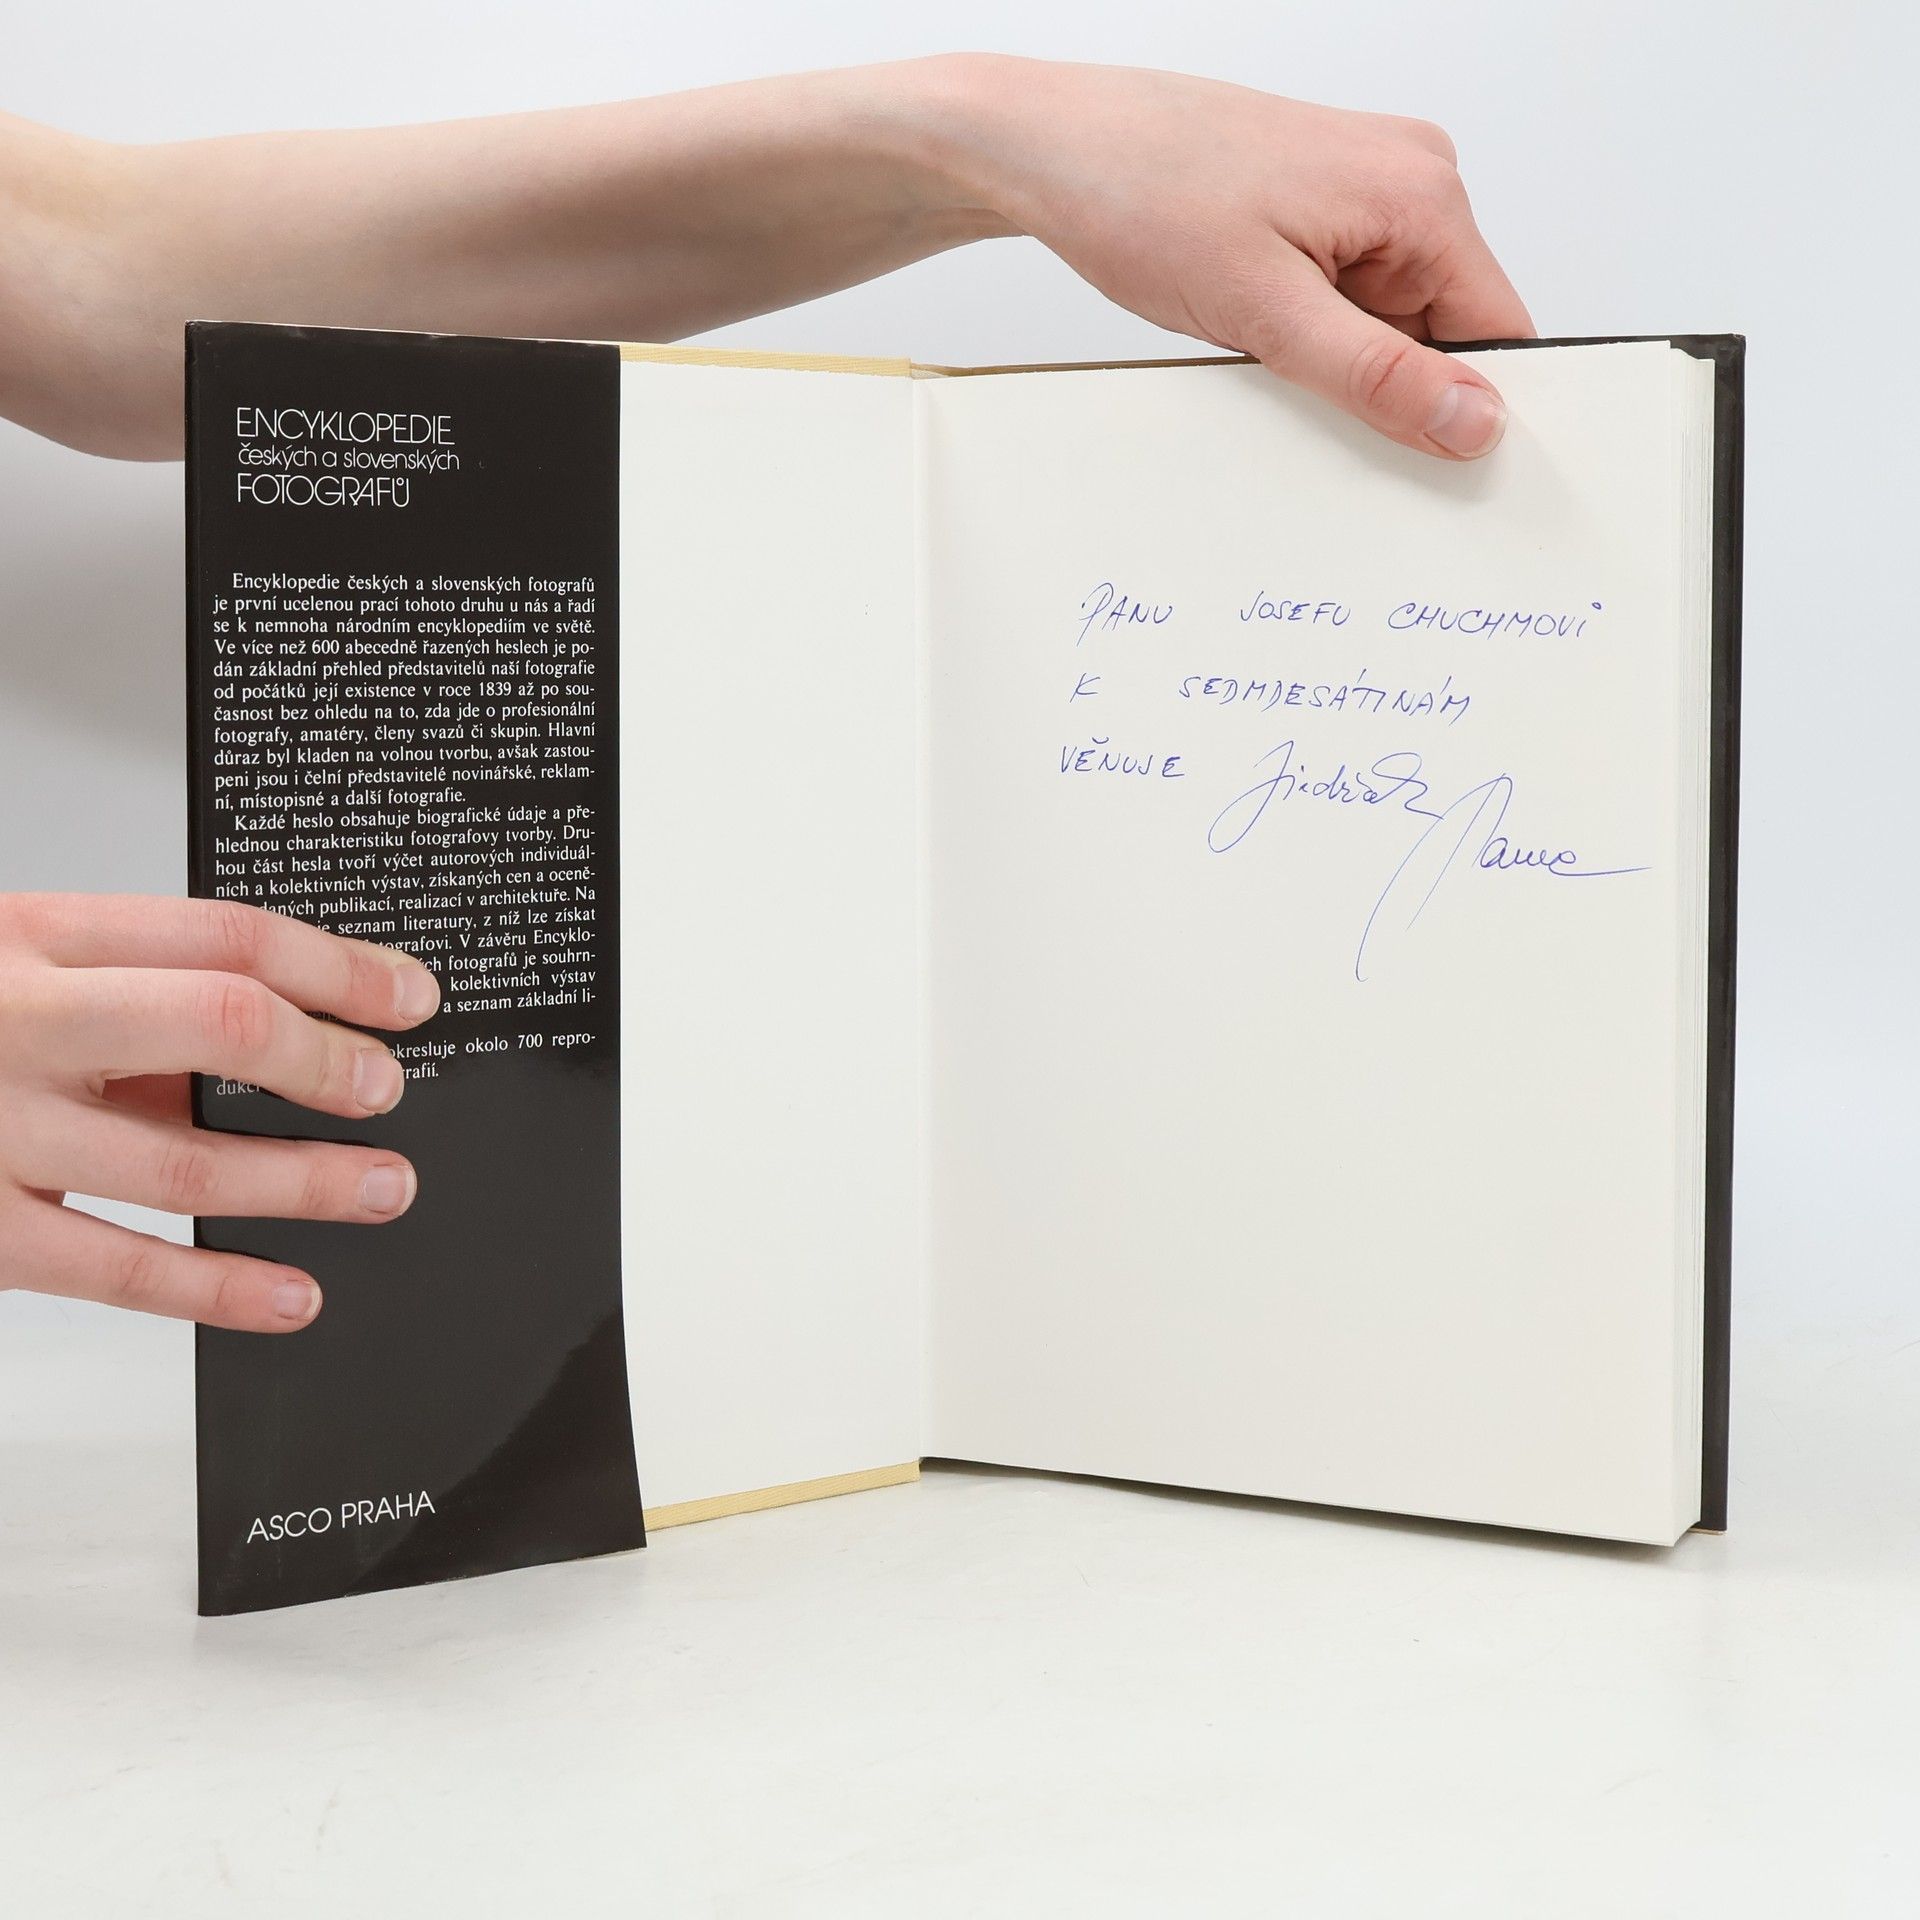 ENCYKLOPEDIE
českých a slovenských
FOTOGRAFŮ
Encyklopedie českých a slovenských fotografů
je první ucelenou prací tohoto druhu u nás a řadí
se k nemnoha národním encyklopediím ve světě.
Ve více než 600 abecedně řazených heslech je po-
dán základní přehled představitelů naší fotografie
od počátků její existence v roce 1839 až po sou-
časnost bez ohledu na to, zda jde o profesionální
fotografy, amatéry, členy svazů či skupin. Hlavní
důraz byl kladen na volnou tvorbu, avšak zastou-
peni jsou i čelní představitelé novinářské, reklam-
ní, místopisné a další fotografie.
Každé heslo obsahuje biografické údaje a pře-
hlednou charakteristiku fotografovy tvorby. Dru-
hou část hesla tvoří výčet autorových individuál-
ních a kolektivních výstav, získaných cen a oceně-
daných publikací, realizací v architektuře. Na
je seznam literatury, z níž lze získat
tografovi. V závěru Encyklo-
ch fotografů je souhrn-
kolektivních výstav
a seznam základní li-
okresluje okolo 700 repro-
dukcí rafií.
ASCO PRAHA
PANU JOSEFU CHUCHMOVI
K SEDMDESÁTINÁM
VĚNUJE Jindřich